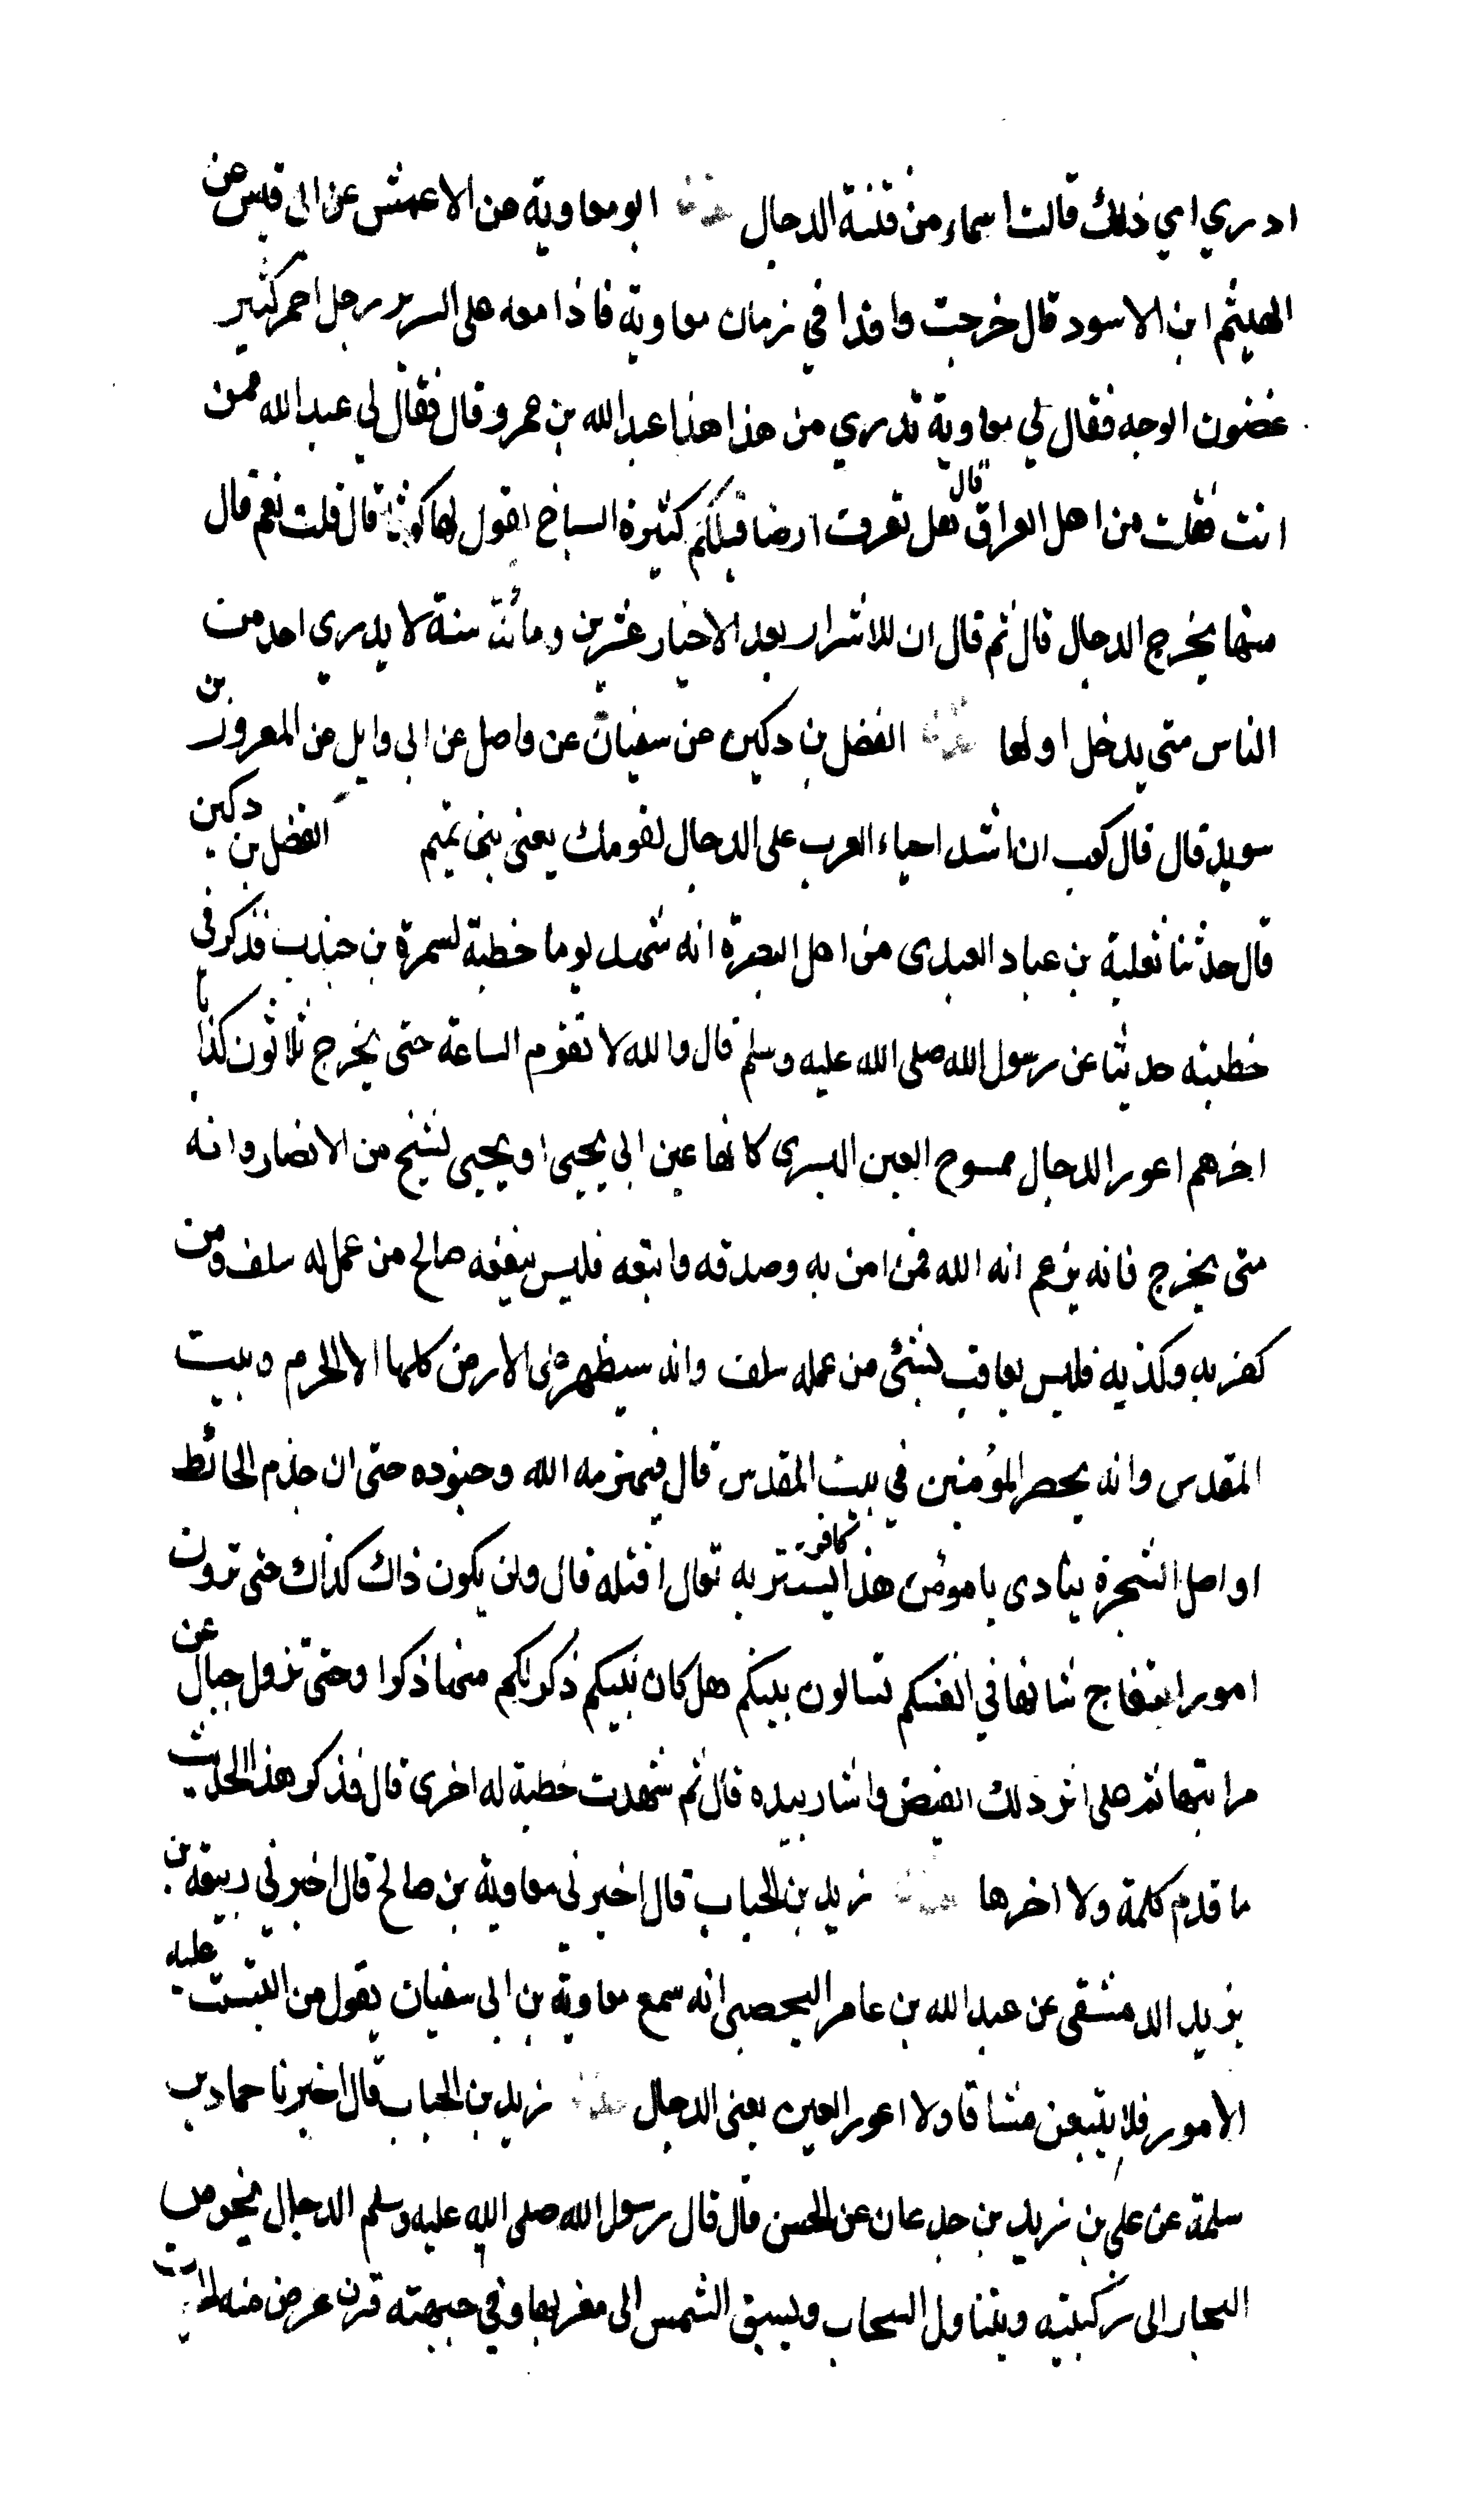 ادري اي ذلك قالت اسماء من فتنة الدجال حدثنا ابو معاوية عن الاعمش عن ابي قيس عن
الهيثم ابن الاسود قال خرجت وافدا في زمان معاوية فاذا معه على السرير رجل احمر كثير
غضون الوجه فقال لي معاوية تدري من هذا هذا عبد الله بن عمرو قال فقال لي عبد الله ممن
انت فقلت من اهل العراق قال هل تعرف ارضا قبلكم كثيرة السباخ يقول لها كوثا قال قلت نعم قال
منها يخرج الدجال قال ثم قال ان للاشرار بعد الاخيار عشرين ومائة سنة لا يدري احد من
الناس متى يدخل اولها حدثنا الفضل بن دكين عن سفيان عن واصل عن ابي وايل عن المعرور بن
سويد قال قال كعب ان اشد احياء العرب على الدجال لقومك يعنى بنى تميم الفضل بن دكين
قال حدثنا ثعلبة بن عباد العبدى من اهل البصرة انه شهد يوما خطبة لسمرة بن جندب فذكر في
خطبته حديثا عن رسول الله صلى الله عليه وسلم قال والله لا تقوم الساعة حتى يخرج ثلاثون كذابا
اخرهم اعور الدجال ممسوح العين اليسرى كانها عين ابي يحيى او يحيى لشيخ من الانصار وانه
متى يخرج فانه يزعم انه الله فمن امن به وصدقه واتبعه فليس ينفعه صالح من عمل له سلف ومن
كفر به وكذبه فليس يعاقب بشئ من عمله سلف وانه سيظهر على الارض كلها الا الحرم وبيت
المقدس وانه يحصر المؤمنين في بيت المقدس قال فيهزمه الله وجنوده حتى ان جذم الحائط
او اصل الشجرة ينادى يا مومن هذا كافر يستتر به تعال اقتله قال ولن يكون ذاك كذاك حتى ترون
امورا يتفاج شانها في انفسكم تسالون بينكم هل كان نبيكم ذكر لكم منها ذكرا وحتى تزول جبال عن
مراتبها ثم على اثر ذلك القبض واشار بيده قال ثم شهدت خطبة له اخرى قال فذكر هذا الحديث
ما قدم كلمة ولا اخرها حدثنا زيد بن الحباب قال اخبرنى معاوية بن صالح قال اخبرني ربيعة بن
يزيد الدمشقى عن عبد الله بن عامر اليحصبى انه سمع معاوية بن ابى سفيان يقول من التبست عليه
الامور فلا يتبعن مشاقا ولا اعور العين يعنى الدجال حدثنا زيد بن الحباب قال اخبرنا حماد بن
سلمة عن علي بن زيد بن جدعان عن الحسن قال قال رسول الله صلى الله عليه وسلم الدجال يخوض
البحار الى ركبتيه ويتناول السحاب ويسبق الشمس الى مغربها وفي جبهته قرن عرض منه